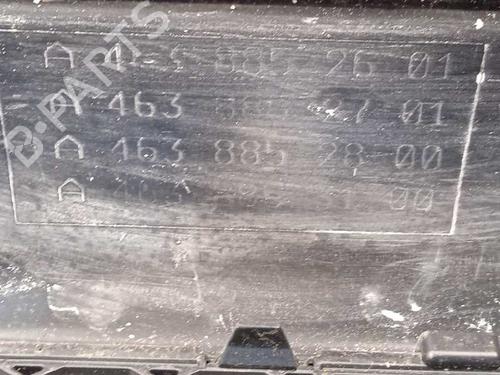 A 463 885 26 01
A 463 885 27 01
A 463 885 28 00
A 463 00
B-PARTS